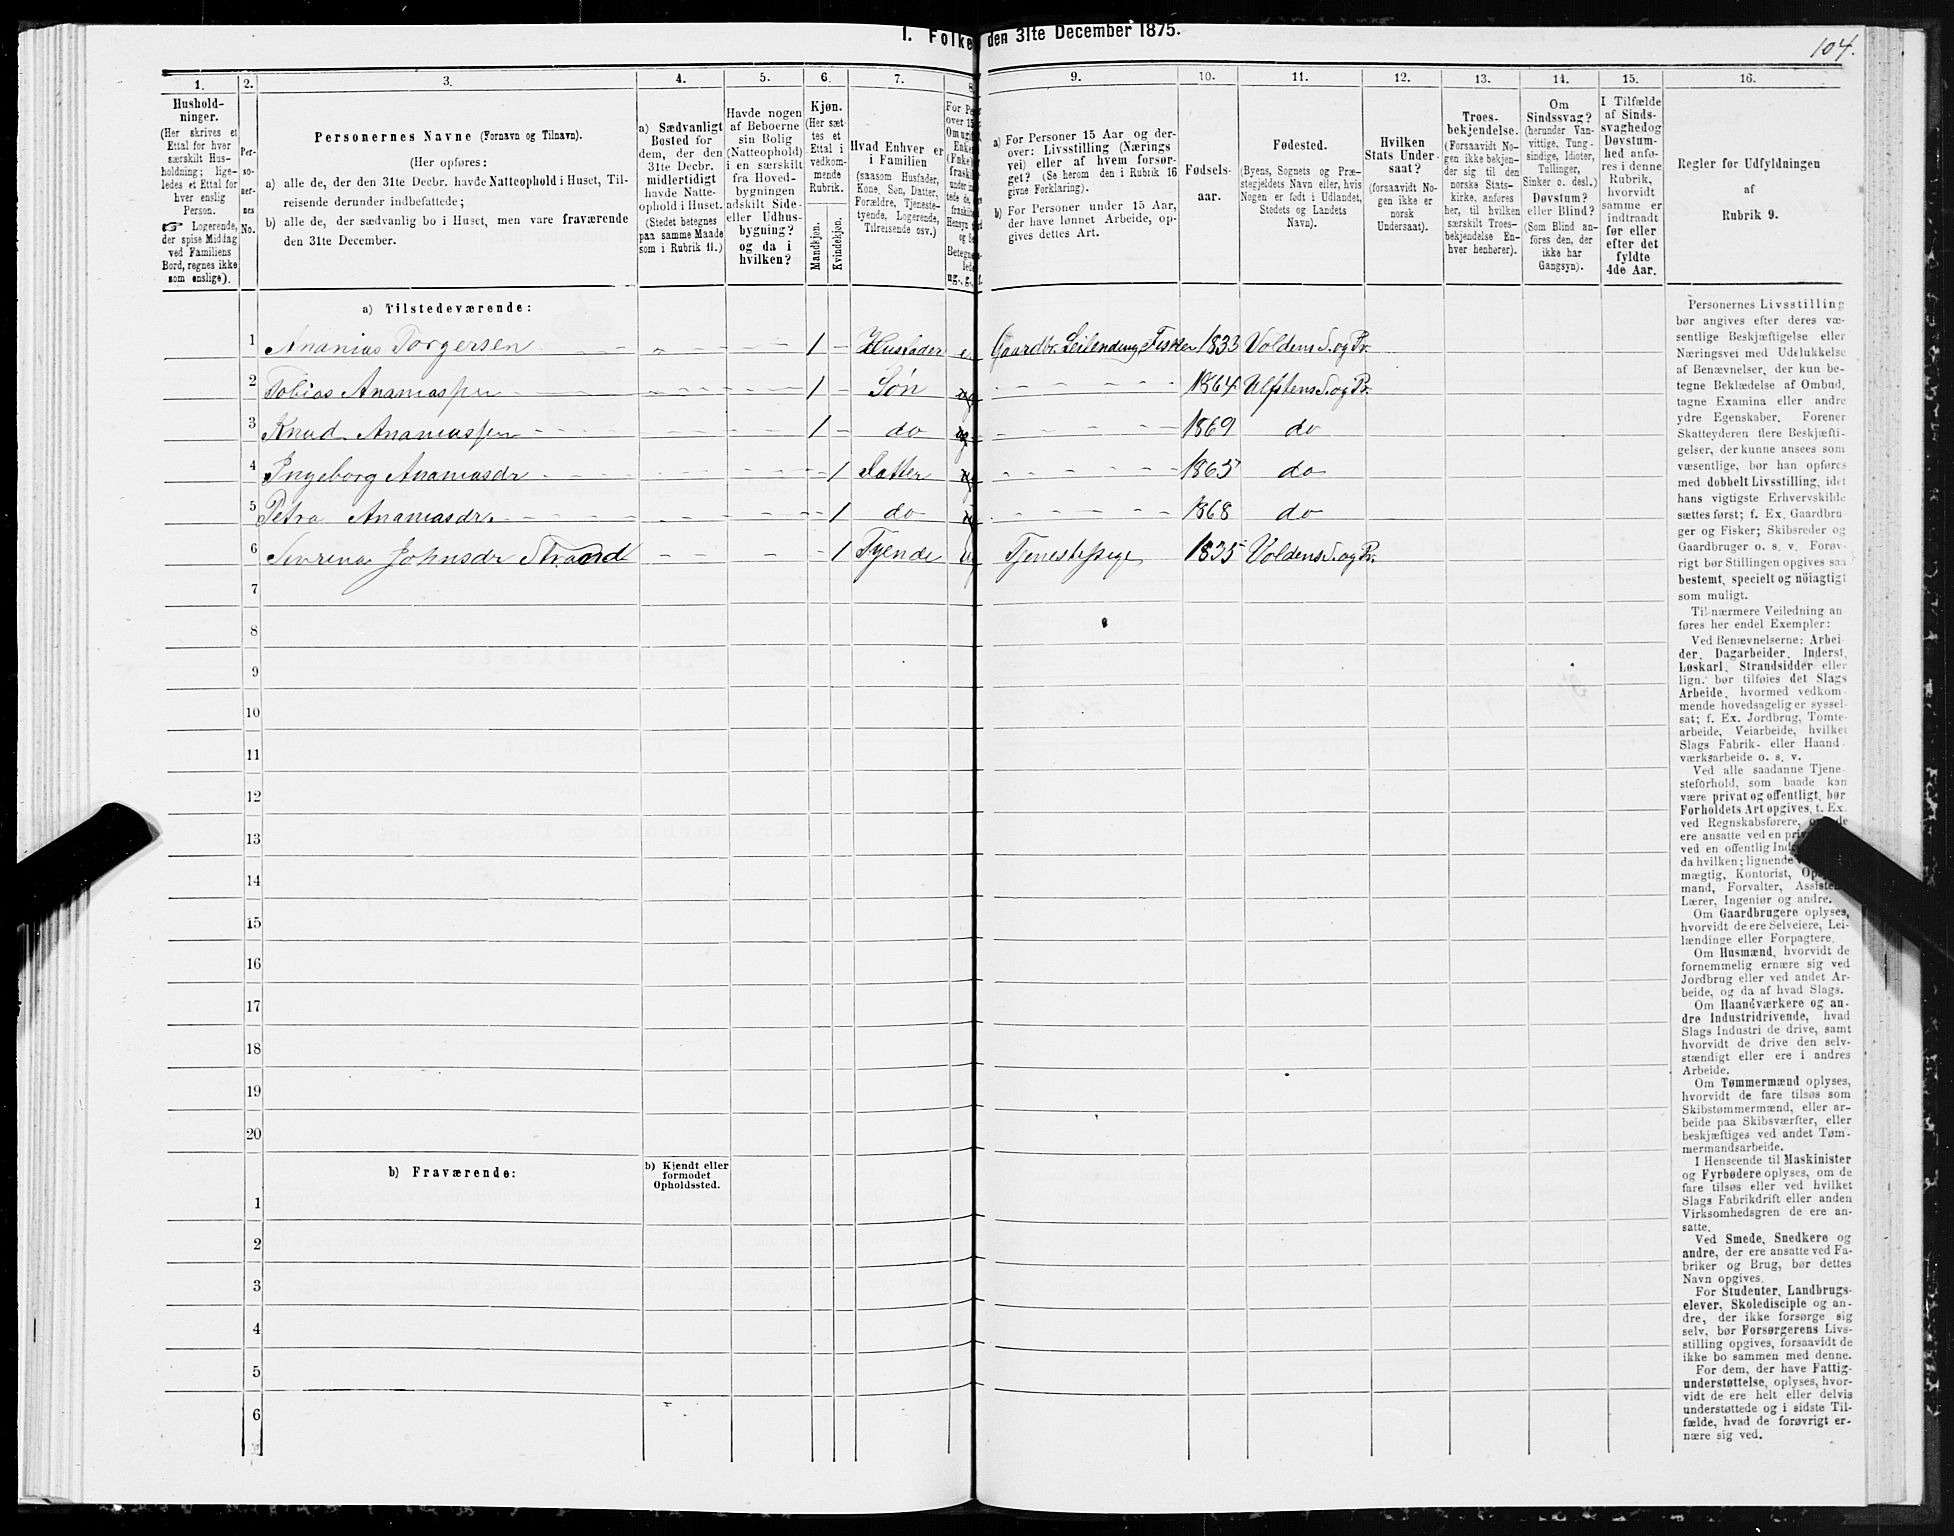 I. Folke den 31te December 1875.
104.
1.
Hushold-
ninger.
(Her skrives et
Ettal for hver
særskilt Hus-
holdning; lige-
ledes et Ettal for
hver enslig
Person.
Logerende,
der spise Middag
ved Familiens
Bord, regnes ikke
som enslige).
2.
Per-
so-
ner-
nes
No.
3.
Personernes Navne (Fornavn og Tilnavn).
(Her opføres:
a) alle de, der den 31te Decbr. havde Natteophold i Huset, Til-
reisende derunder indbefattede;
b) alle de, der sædvanlig bo i Huset, men vare fraværende
den 31te December.
4.
a) Sædvanligt
Bosted for
dem, der den
31te Decbr.
midlertidigt
havde Natte-
ophold i Huset.
(Stedet betegnes
paa samme Maade
som i Rubrik 11.)
5.
Havde nogen
af Beboerne
sin Bolig
(Natteophold)
i en særskilt
fra Hoved-
bygningen
adskilt Side-
eller Udhus-
bygning?
og da i
hvilken?
6.
Kjøn.
(Her sæt-
tes et
Ettal i
vedkom-
mende
Rubrik.
Mandkjøn.
Kvindekjøn.
7.
Hvad Enhver er
i Familien
(saasom Husfader,
Kone, Søn, Datter,
Forældre, Tjeneste-
tyende, Logerende,
Tilreisende osv.)
8
For Pe
over 15
Om ugift
Enke
(Fnke)
fraskil
9.
a) For Personer 15 Aar og der-
over: Livsstilling (Nærings
vei) eller af hvem forsør-
get? (Se herom den i Rubrik 16
givne Forklaring).
b) For Personer under 15 Aar,
der have lønnet Arbeide, op-
gives dettes Art.
10.
Fødsels-
aar.
11.
Fødested.
(Byens, Sognets og Præ-
stegjeldets Navn eller, hvis
Nogen er født i Udlandet,
Stedets og Landets
Navn).
12.
Hvilken
Stats Under-
saat?
(forsaavidt No-
gen ikke er
norsk
Undersaat).
13.
Troes-
bekjendelse.
(Forsaavidt No-
gen ikke bekjen-
der sig til den
norske Stats-
kirke, anføres
her, til hvilken
særskilt Troes-
bekjendelse En-
hver henhører).
14.
Om
Sindssvag?
(herunder Van-
vittige, Tung-
sindige, Idioter,
Tullinger,
Sinker o. desl.)
Døvstum?
eller Blind?
(Som Blind an-
føres den, der
ikke har
Gangsyn).
15.
I Tilfælde
af Sinds-
svaghedog
Døvstum-
hed anfø-
res i denne
Rubrik,
hvorvidt
samme er
indtraadt
før eller
efter det
fyldte
4de Aar.
16.
Regler for Udfyldningen
af
Rubrik 9.
a) Tilstedeværende:
1 Ananias Torgersen 1 Husfader e Gaardbr. Leilending Fisker 1833 Voldens S. og Pr.
2 Tobias Ananiassen 1 Søn ug 1864 Ulfstens S. og Pr.
3 Knud Ananiassen 1 do ug 1869 do
4 Ingeborg Ananiasdr 1 Datter ug 1865 do
5 Petra Ananiasdr. 1 do ug 1868 do
6 Johnsdr Strand 1 Tyende ug Tjenestepige 1835 Voldens S. og Pr.
7
8
9
10
11
12
13
14
15
16
17
18
19
20
b) Fraværende:
b) Kjendt eller
formodet
Opholdssted.
1
2
3
4
5
6
Personernes Livsstilling
bør angives efter deres væ-
sentlige Beskjæftigelse eller
Næringsvei med Udelukkelse
af Benævnelser, der kun be-
tegne Beklædelse af Ombud,
tagne Examina eller andre
ydre Egenskaber. Forener
Skatteyderen flere Beskjæfti-
gelser, der kunne ansees som
væsentlige, bør han opføres
med dobbelt Livsstilling, idet
hans vigtigste Erhvervskilde
sættes først; f. Ex. Gaardbru-
ger og Fisker; Skibsreder og
Gaardbruger o. s. v. Forøv-
rigt bør Stillingen opgives saa
bestemt, specielt og nöiagtigt
som muligt.
Til nærmere Veiledning an-
føres her endel Exempler:
Ved Benævnelserne: Arbei-
der, Dagarbeider, Inderst,
Løskarl, Strandsidder eller
lign. bør tilføies det Slags
Arbeide, hvormed vedkom-
mende hovedsagelig er syssel-
sat; f. Ex. Jordbrug, Tomte-
arbeide, Veiarbeide, hvilket
Slags Fabrik- eller Haand-
værksarbeide o. s. v.
Ved alle saadanne Tjene-
steforhold, som baade kan
være privat og offentligt, bør
Forholdets Art opgives, t. Ex.
ved Regnskabsførere,
ere ansatte ved en
ved en offentlig
da hvilken; lignende
mægtig, Kontorist,
mand, Forvalter,
Lærer, Ingeniør og andre.
Om Gaardbrugere oplyses,
hvorvidt de ere Selveiere, Lei-
lændinge eller Forpagtere.
Om Husmænd, hvorvidt de
fornemmelig ernære sig ved
Jordbrug eller ved andet Ar-
beide, og da af hvad Slags.
Om Haandværkere og an-
dre Industridrivende, hvad
Slags Industri de drive, samt
hvorvidt de drive den selv-
stændigt eller ere i andres
Arbeide.
Om Tømmermænd oplyses,
hvorvidt de fare tilsøs som
Skibstømmermænd, eller ar-
beide paa Skibsværfter, eller
beskjæftiges ved andet Tøm-
mermandsarbeide.
I Henseende til Maskinister
og Fyrbødere oplyses, om de
fare tilsøs eller ved hvilket
Slags Fabrikdrift eller anden
Virksomhedsgren de ere an-
satte.
Ved Smede, Snedkere og
andre, der ere ansatte ved Fa-
briker og Brug, bør dettes
Navn opgives.
For Studenter, Landbrugs-
elever, Skoledisciple og an-
dre, der ikke forsørge sig
selv, bør Forsørgerens Livs-
stilling opgives, forsaavidt de
ikke bo sammen med denne.
For dem, der have Fattig-
understøttelse, oplyses, hvor-
vidt de ere helt eller delvis
understøttede og i sidste Til-
fælde, hvad de forøvrigt er-
nære sig ved.